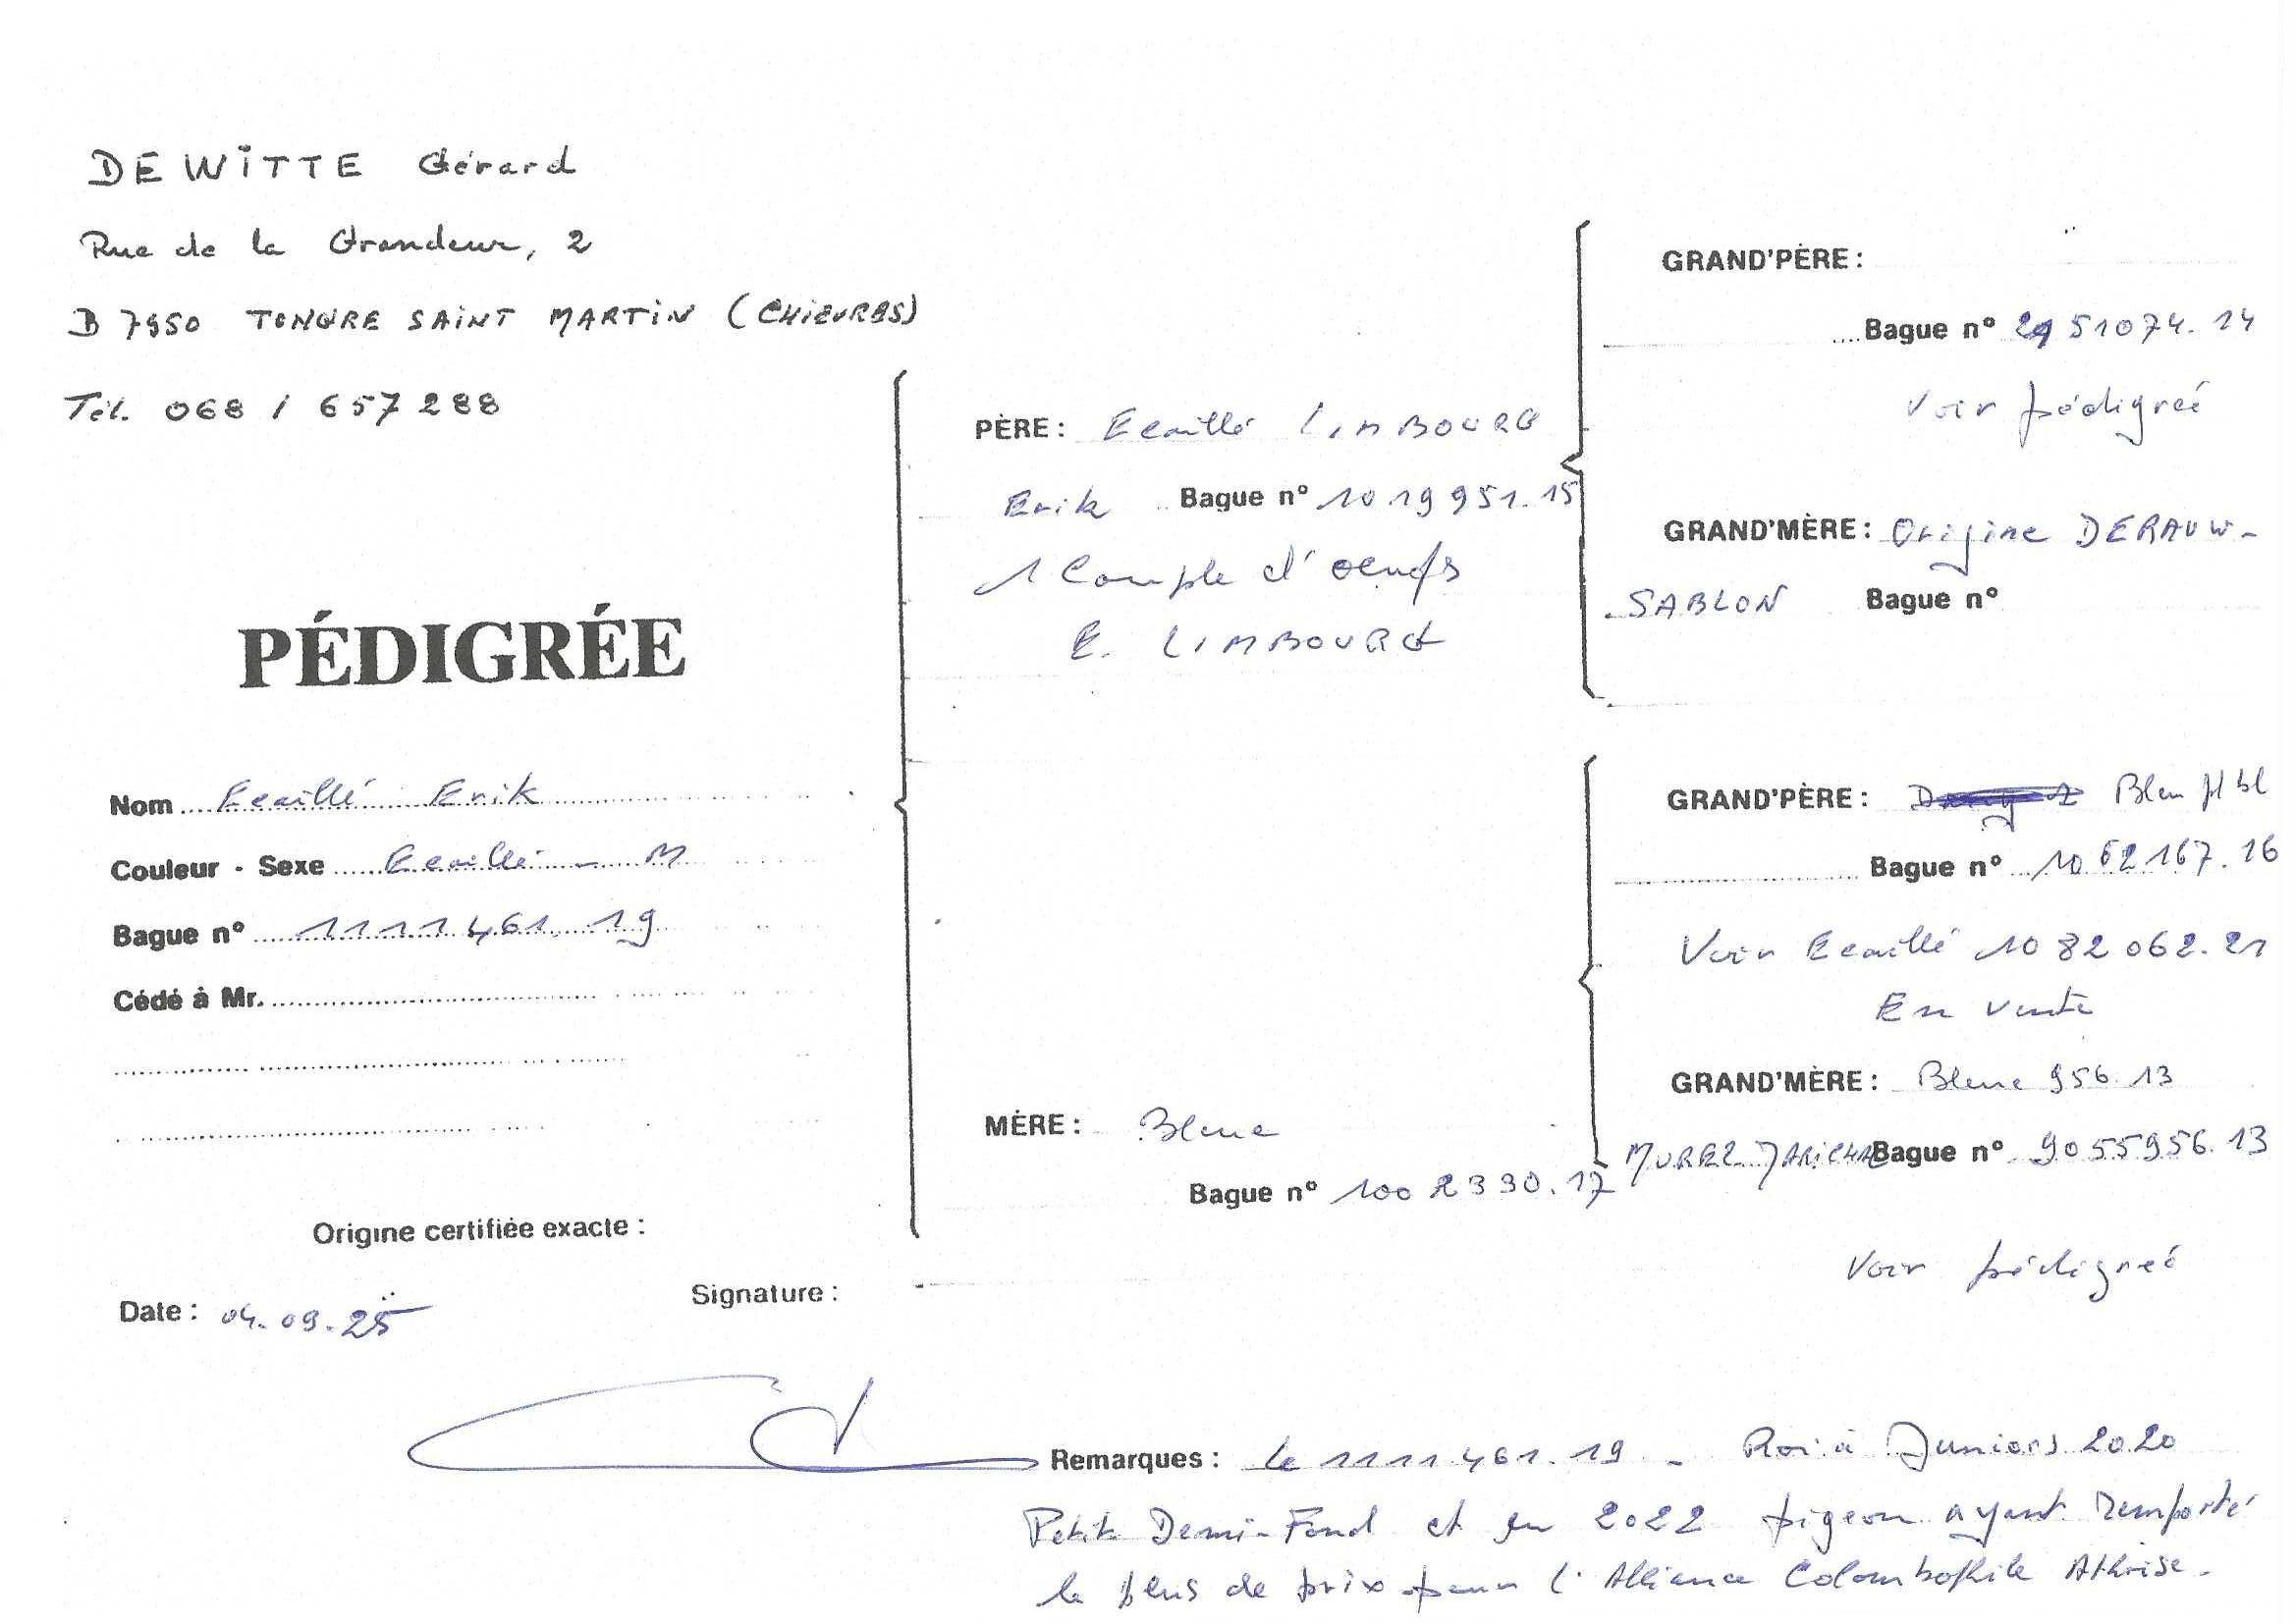 DEWITTE Gérard
Rue de la Grandeur, 2
B 7950 TONGRE SAINT MARTIN (CHIEVRES)
Tél. 068 / 657288
PÉDIGRÉE
Nom Ecaillé Erik
Couleur - Sexe Ecaillé - M
Bague n° 1111461.19
Cédé à Mr.
Origine certifiée exacte :
Date : 04.09.25
Signature :
PÈRE : Ecaillé LIMBOURG
Erik Bague n° 1019951.15
1 Couple d'oeufs
E. LIMBOURG
MÈRE : Bleue
Bague n° 1002330.17
GRAND'PÈRE :
Bague n° 2151074.14
Voir pédigreé
GRAND'MÈRE : Origine DERAUW-
SABLON Bague n°
GRAND'PÈRE : Bleu pl bl
Bague n° 1062167.16
Voir Ecaillé 1082062.21
En vente
GRAND'MÈRE : Bleue 956.13
MUREZ MARICHAL Bague n° 9055956.13
Voir pédigreé
Remarques : Le 1111.461.19 - Roi à Juniors 2020
Petit Demi-Fond et en 2022 pigeon ayant remporté
le plus de prix pour l'Alliance Colombophile Athoise.